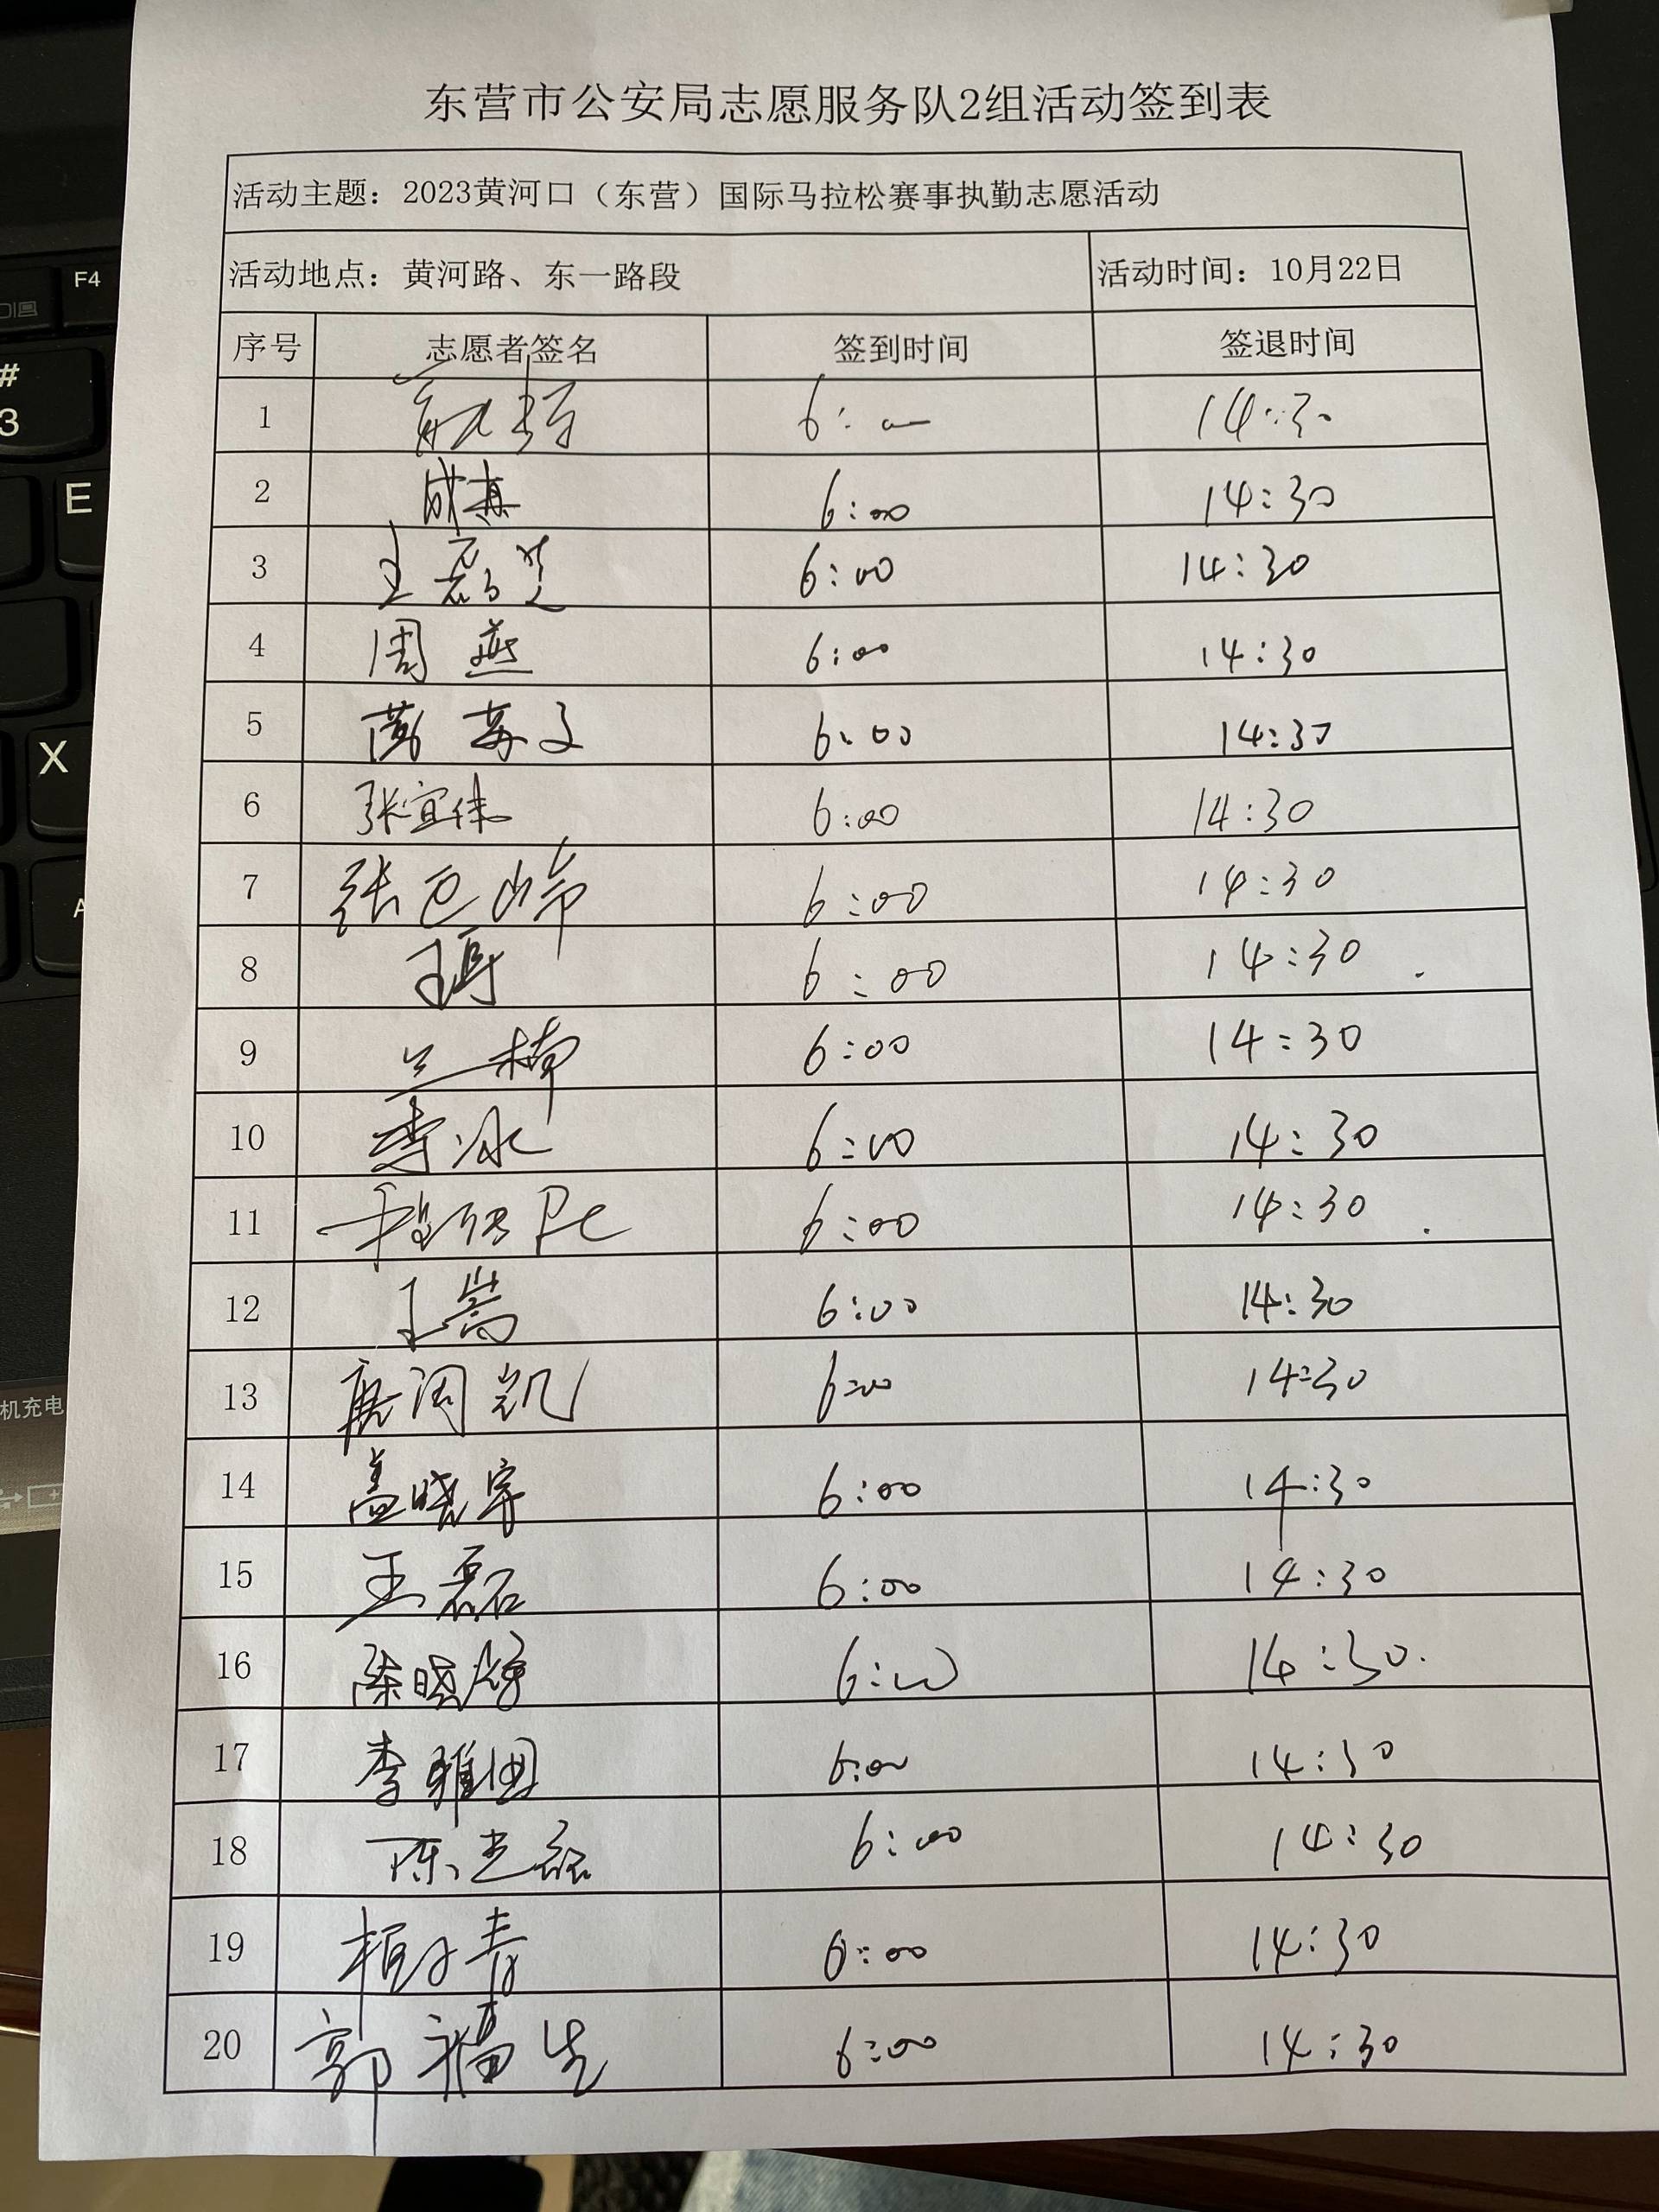 东营市公安局志愿服务队2组活动签到表
活动主题：2023黄河口（东营）国际马拉松赛事执勤志愿活动
活动地点：黄河路、东一路段 活动时间：10月22日
序号 志愿者签名 签到时间 签退时间
1 6:00 14:30
2 6:00 14:30
3 王 6:00 14:30
4 周燕 6:00 14:30
5 6:00 14:30
6 张宜伟 6:00 14:30
7 张 6:00 14:30
8 6:00 14:30
9 兰楠 6:00 14:30
10 李冰 6:00 14:30
11 6:00 14:30
12 王嵩 6:00 14:30
13 唐润凯 6:00 14:30
14 孟晓宇 6:00 14:30
15 王磊 6:00 14:30
16 陈晓 6:00 14:30
17 李雅 6:00 14:30
18 陈志磊 6:00 14:30
19 6:00 14:30
20 郭福生 6:00 14:30
F4
#
3
E
X
A
机充电